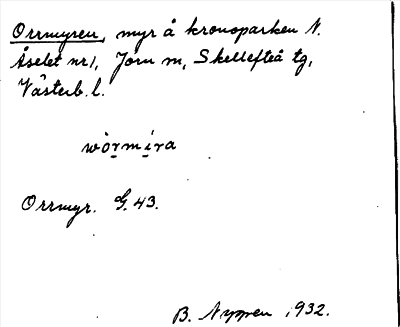 Orrmyren, myr å kronoparken N.
Åselet nr 1, Jörn sn, Skellefteå tg,
Västerb. l.
wòrmíra
Orrmyr. G. 43.
B. Nyman 1932.